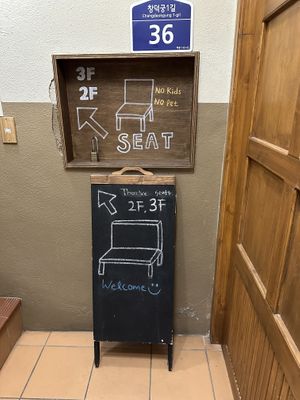 창덕궁1길
Changdeokgung 1-gil
36
3F
2F
NO Kids
NO Pet
SEAT
There're seats
2F, 3F
Welcome